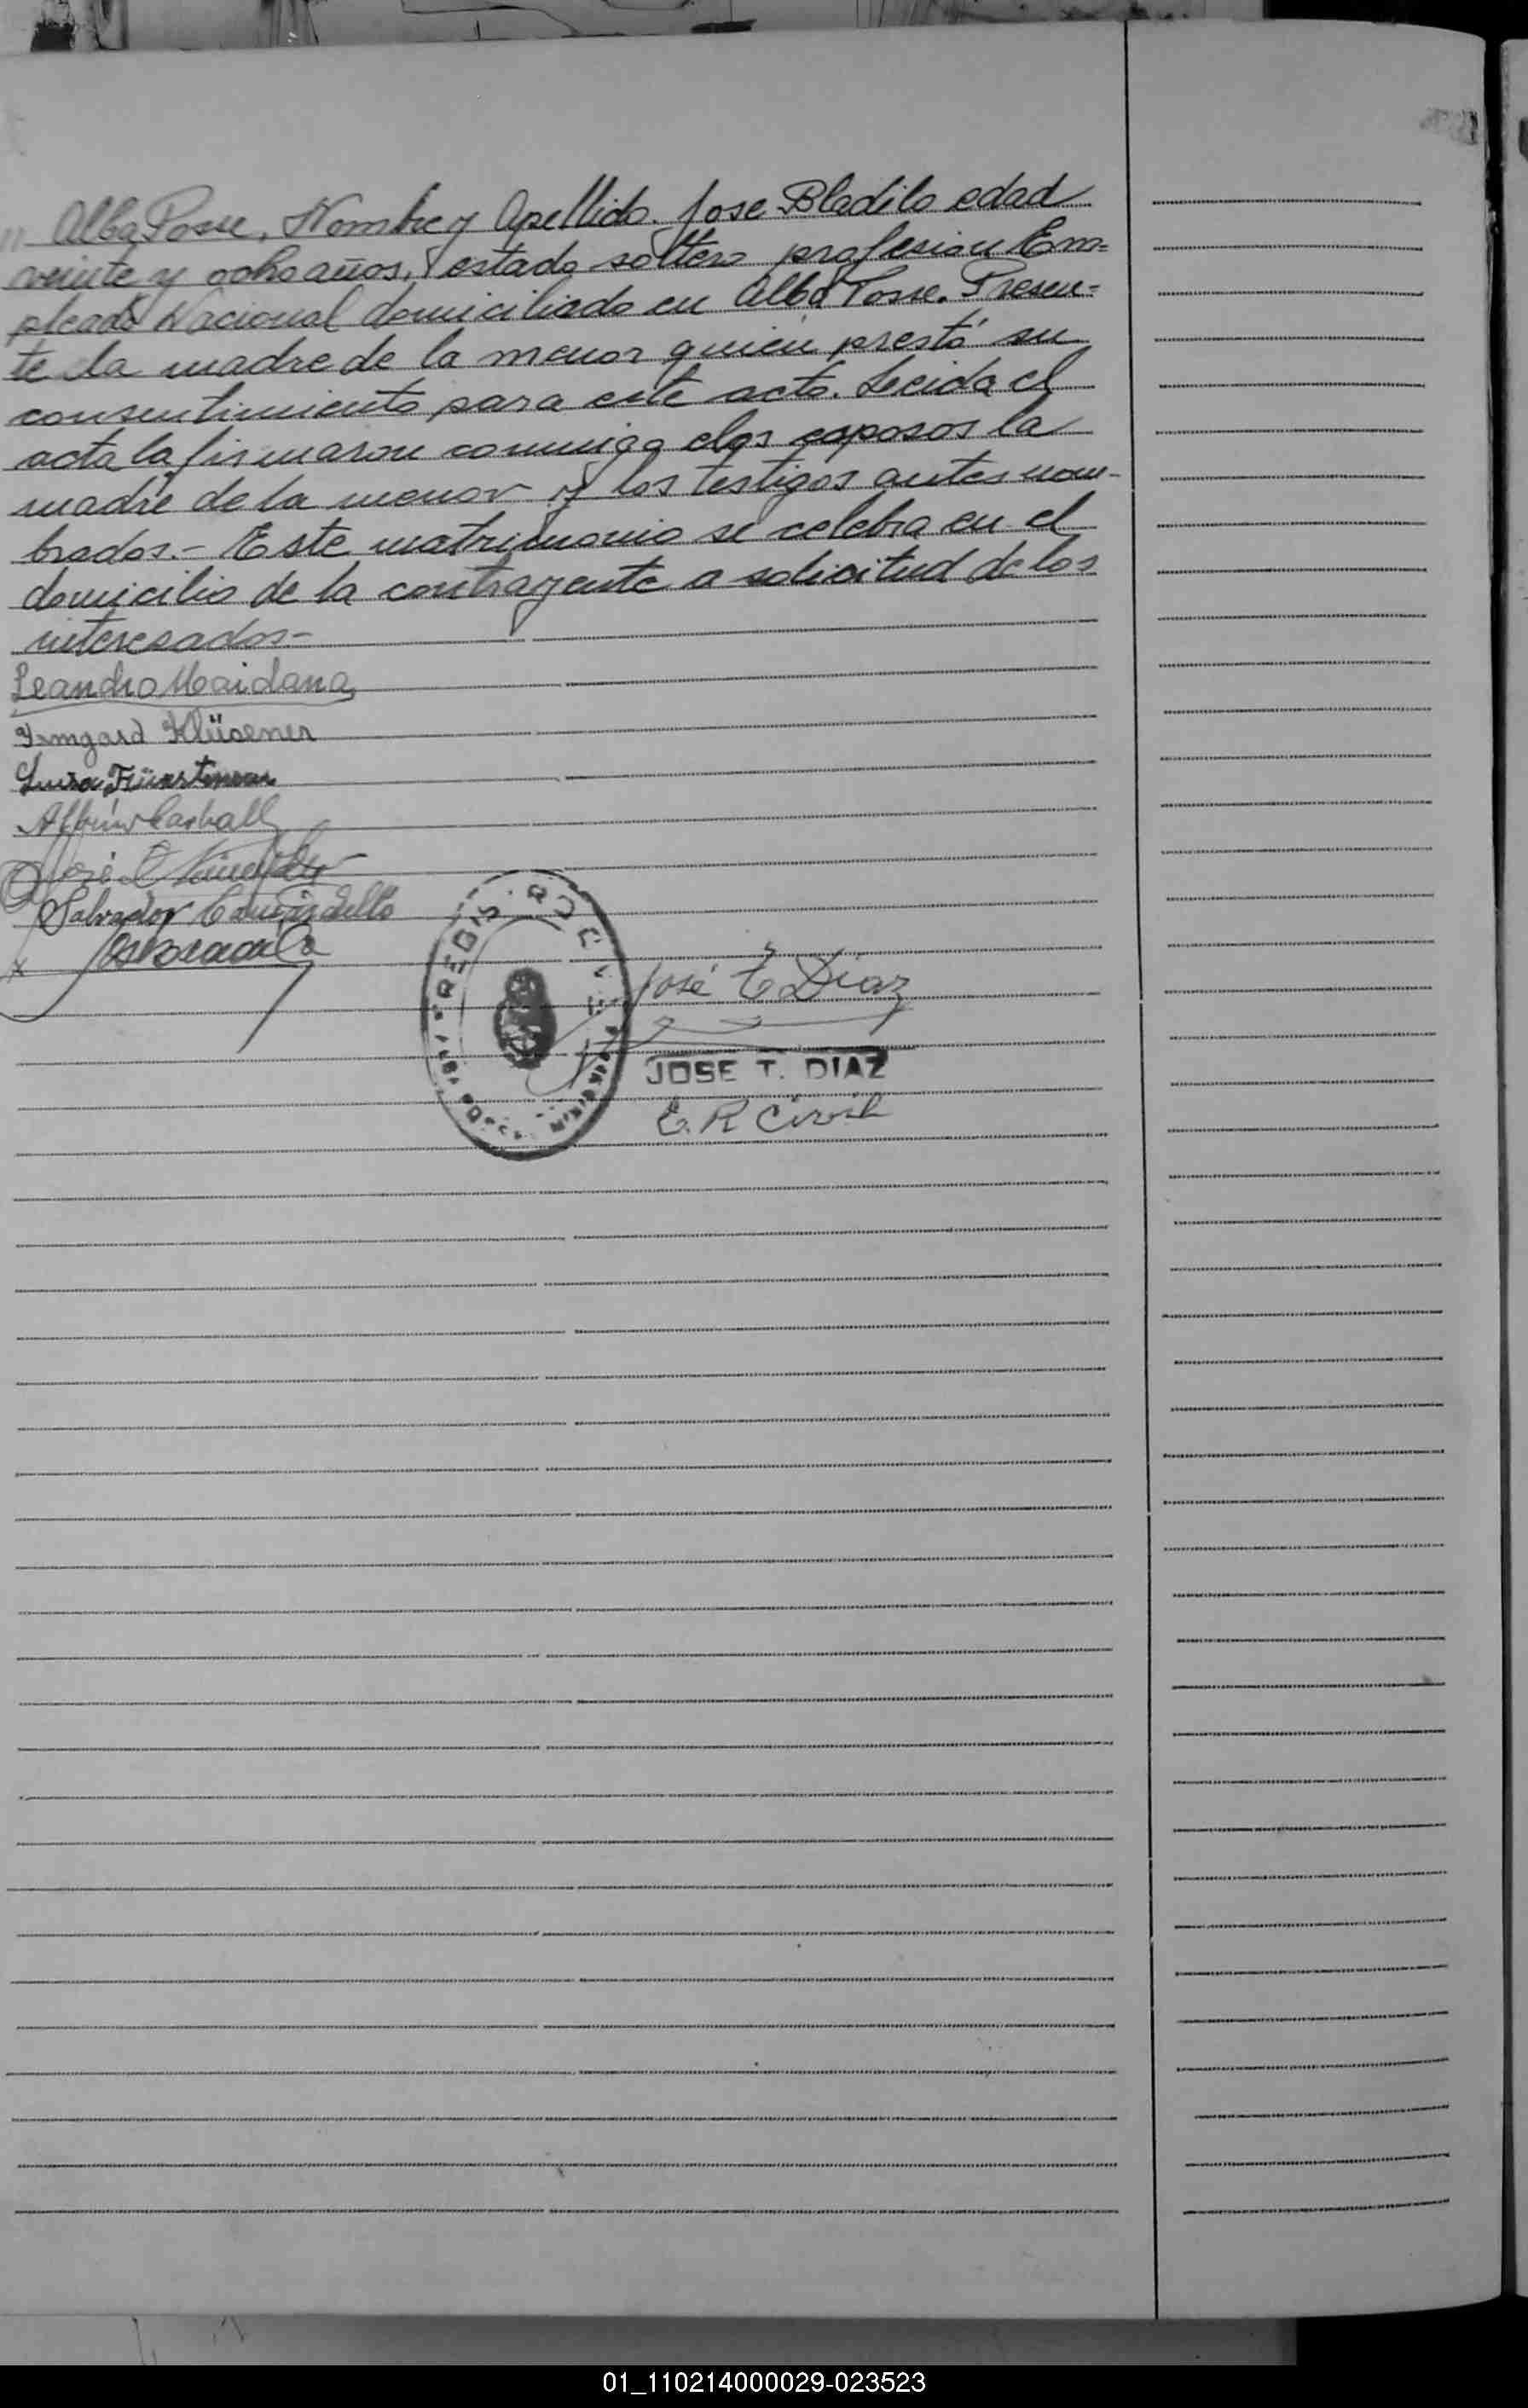 " Alba Posse, Nombre y Apellido. Jose Bladilo edad
veinte y ocho años, estado soltero profesion Em=
pleado Nacional domiciliado en Alba Posse. Presen=
te la madre de la menor quien prestó su
consentimiento para este acto. Leeida el
acta la firmaron conmigo elos esposos la
madre de la menor y los testigos antes nom-
brados.- Este matrimonio se celebra en el
domicilio de la contrayente a solicitud de los
interesados-
Leandro Maidana
Irmgard Klüsener
Luisa
José
Salvador
José E Diaz
JOSE T. DIAZ
E. R Civil
01_110214000029-023523